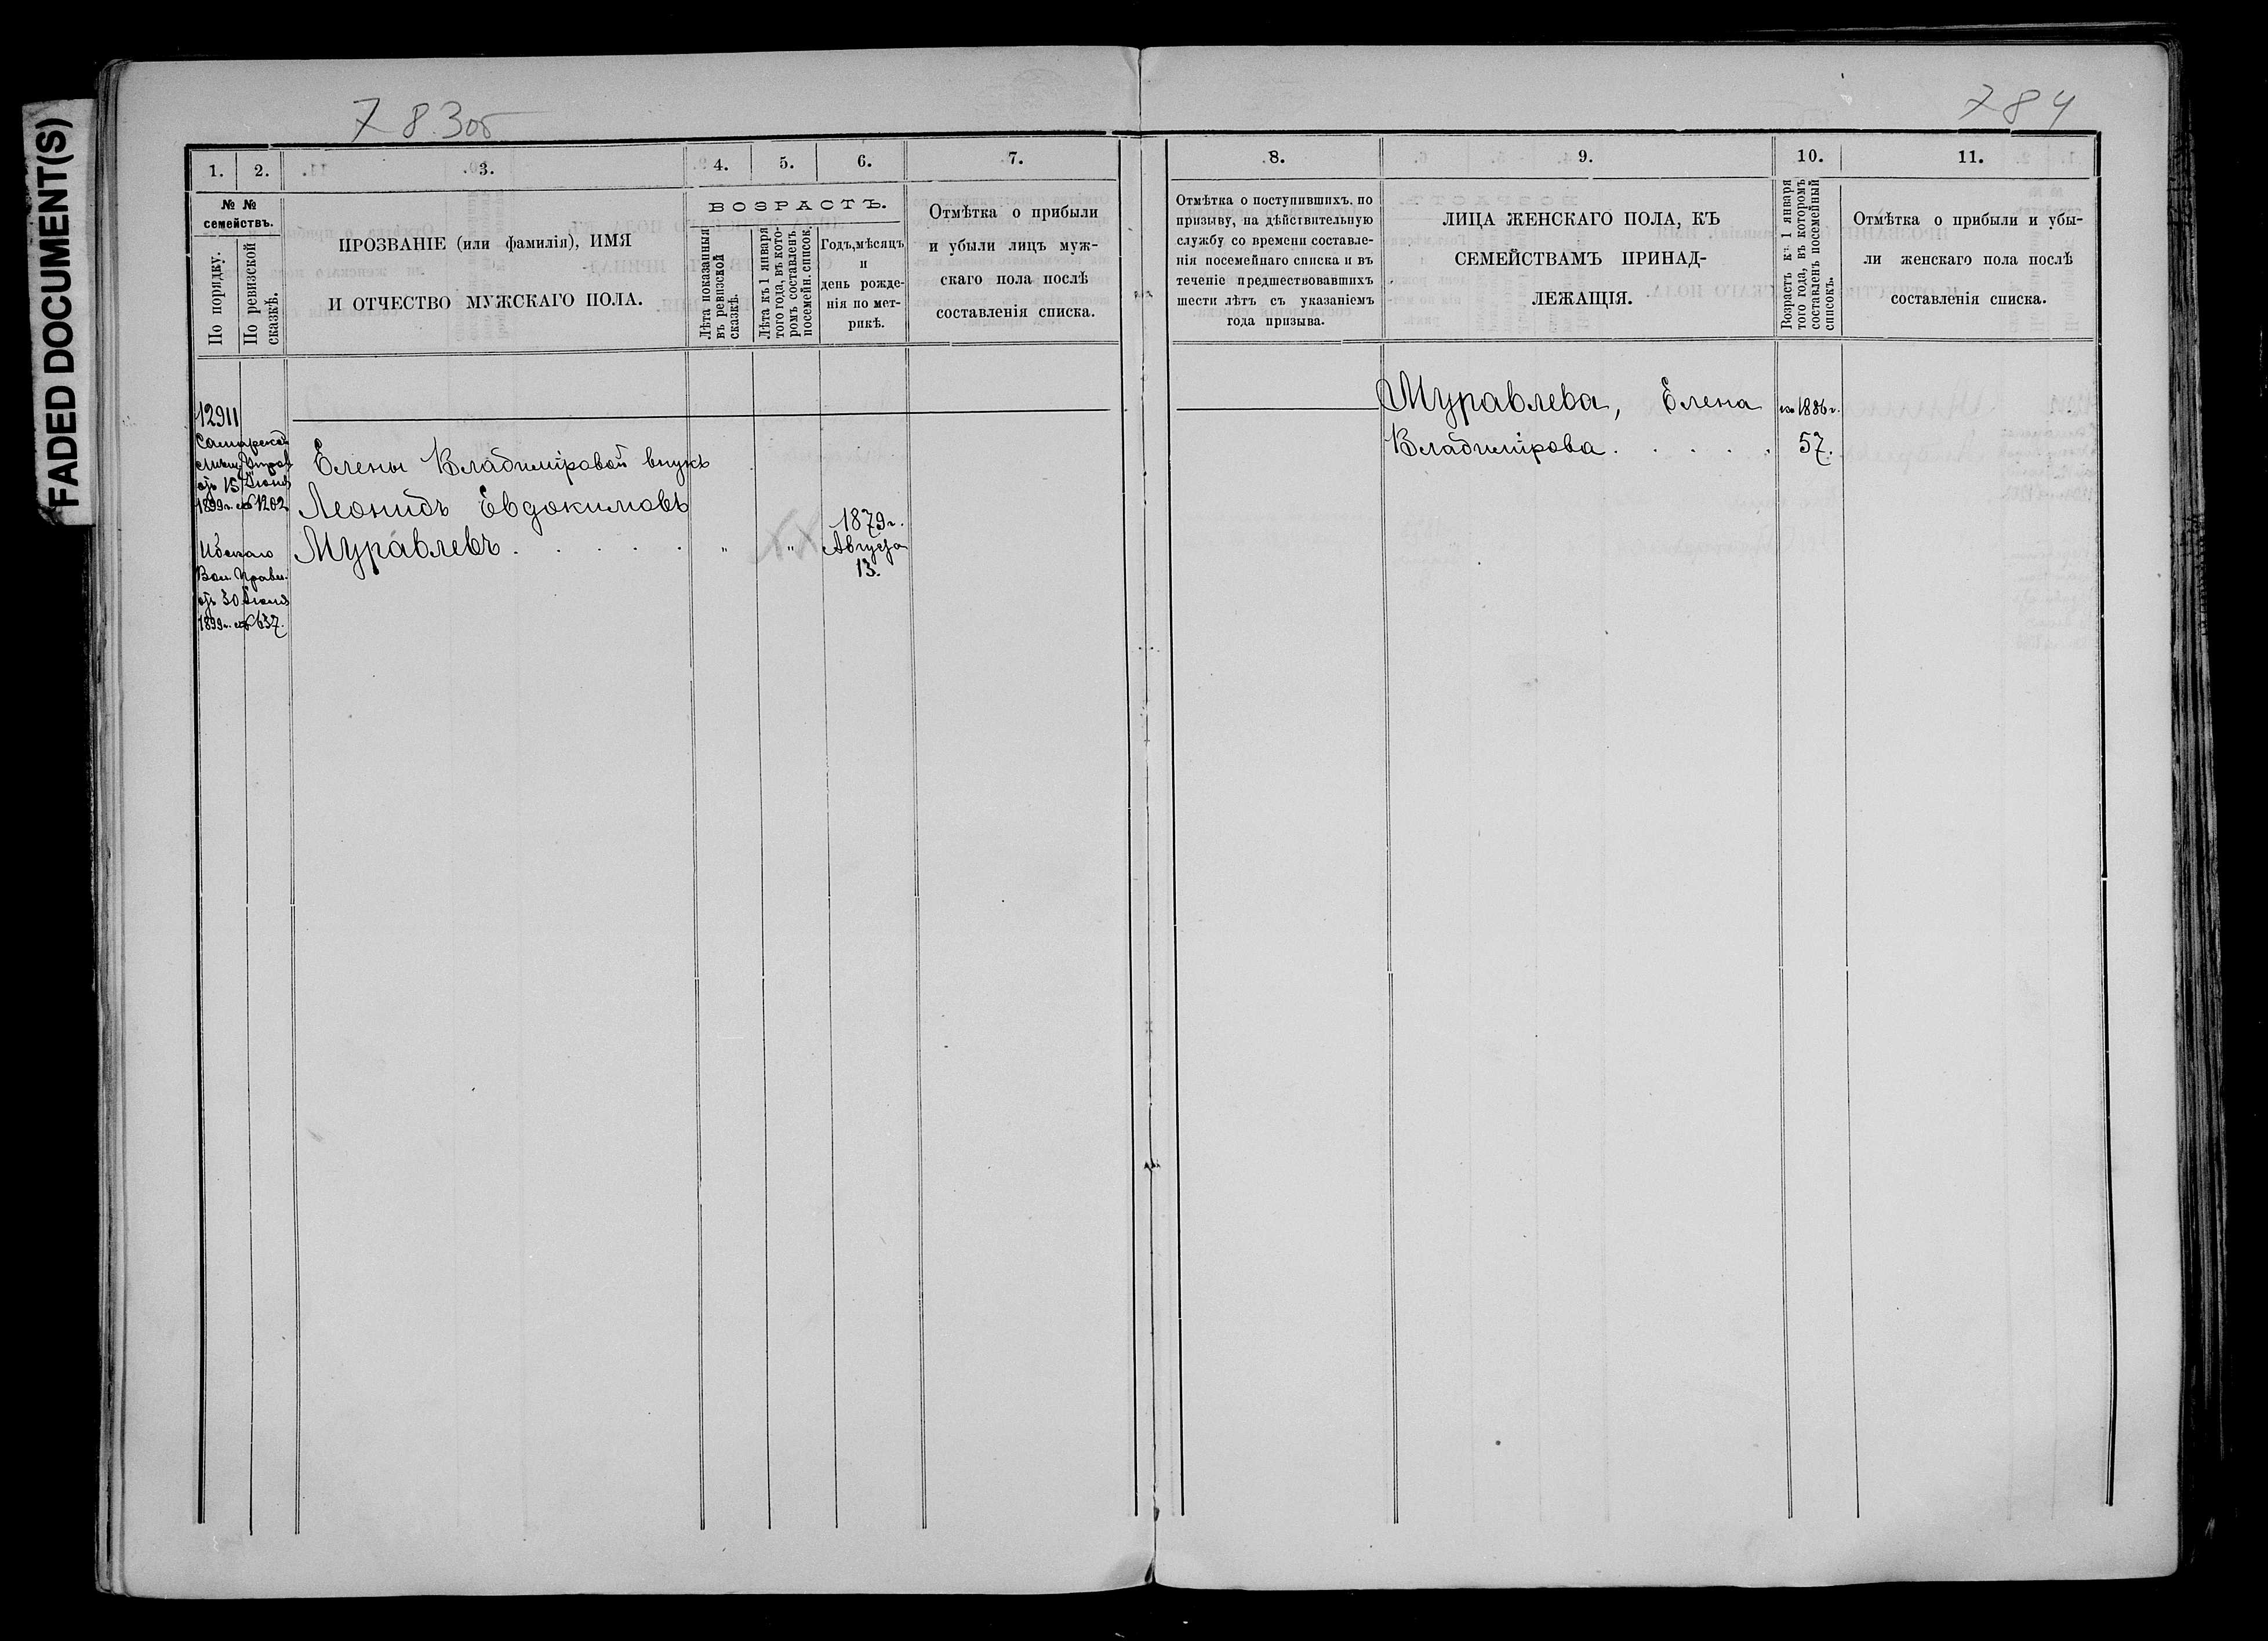 FADED DOCUMENT(S)
783об
784
1. 2. 3. 4. 5. 6. 7.
№ № семействъ.
По порядку.
По ревизской сказкѣ.
ПРОЗВАНІЕ (или фамилія), ИМЯ
И ОТЧЕСТВО МУЖСКАГО ПОЛА.
ВОЗРАСТЪ.
Лѣта показанныя
въ ревизской
сказкѣ.
Лѣта къ 1 января
того года, въ кото-
ромъ составленъ
посемейн. список.
Годъ, мѣсяцъ
и
день рожде-
нія по мет-
рикѣ.
Отмѣтка о прибыли
и убыли лицъ муж-
скаго пола послѣ
составленія списка.
12911
Самарской
Мѣщ. Управ
отъ 15 Іюня
1899 г. № 1202
Вол. Правл.
отъ 30 Іюня
1899 г. № 637.
Елены Владиміровой внукъ
Леонидъ Евдокимовъ
Муравлевъ . . . . . " "
1879 г.
Августа
13.
8. 9. 10. 11.
Отмѣтка о поступившихъ по
призыву, на дѣйствительную
службу со времени составле-
нія посемейнаго списка и въ
теченіе предшествовавшихъ
шести лѣтъ съ указаніемъ
года призыва.
ЛИЦА ЖЕНСКАГО ПОЛА, КЪ
СЕМЕЙСТВАМЪ ПРИНАД-
ЛЕЖАЩІЯ.
Возрастъ къ 1 января
того года, въ которомъ
составленъ посемейный
списокъ.
Отмѣтка о прибыли и убы-
ли женскаго пола послѣ
составленія списка.
Муравлева, Елена 1886 г.
Владимірова . . . . . 57.